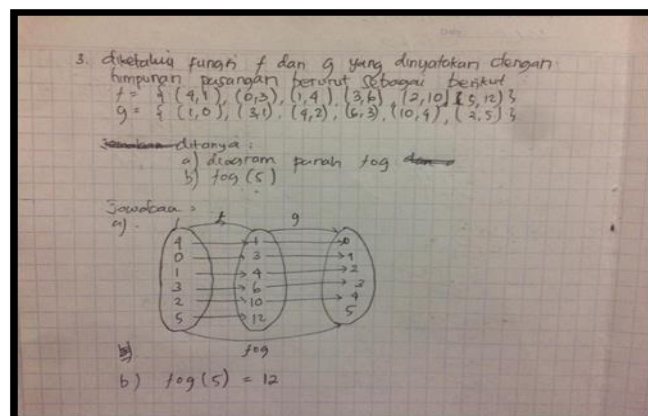 3. diketahui fungsi f dan g yang dinyatakan dengan
himpunan pasangan berurut sebagai berikut
f = { (4,1), (0,3), (1,4), (3,6), (2,10), (5,12) }
g = { (1,0), (3,1), (4,2), (6,3), (10,4), (2,5) }
ditanya :
a) diagram panah fog
b) fog (5)
Jawaban :
a).
f g
4 1 0
0 3 1
1 4 2
3 6 3
2 10 4
5 12 5
fog
b) fog (5) = 12